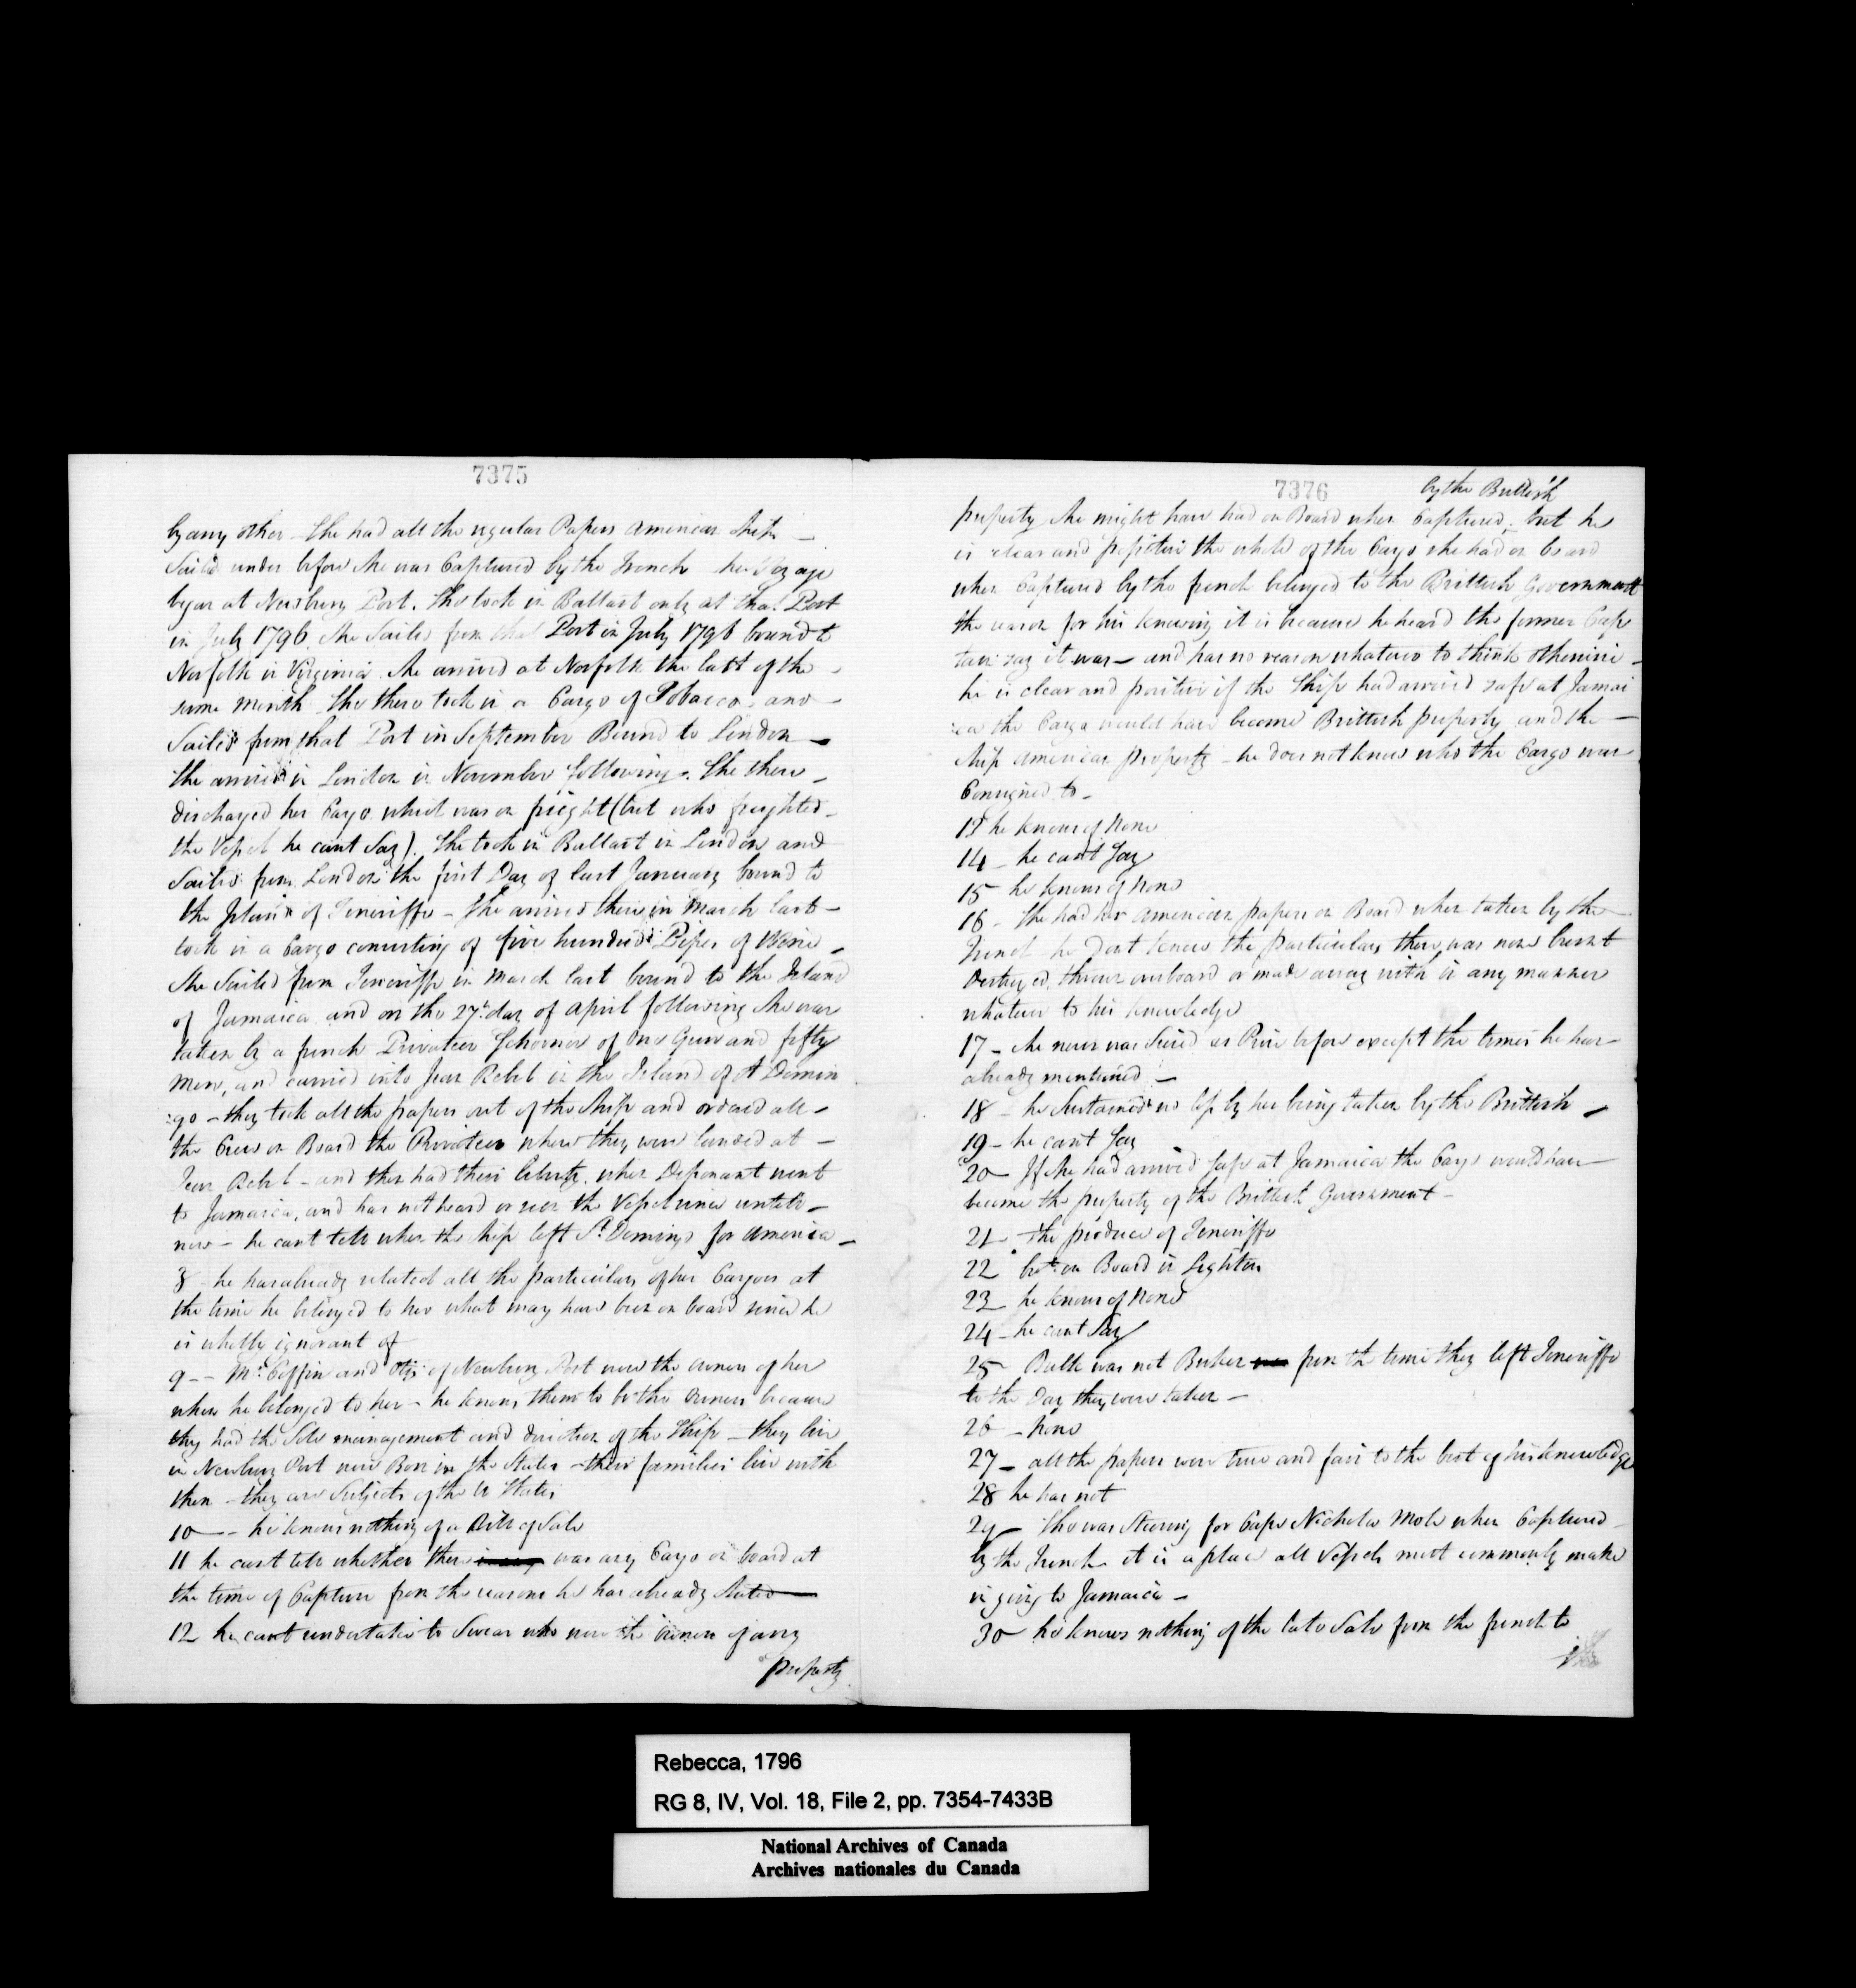 7375
by any other – She had all the regular Papers American Ships –
Sailed under before She was Captured by the French her Voyage
began at Newbury Port. She took in Ballast only at that Port
in July 1796 She Sailed from that Port in July 1796 bound to
Norfolk in Virginia. She arrived at Norfolk the last of the –
same Month She there took in a Cargo of Tobacco and –
Sailed from that Port in September Bound to London –
She arrived in London in November following. She there –
discharged her Cargo which was on freight (but who freighted –
the Vessel he cant Say). She took in Ballast in London and
Sailed from London the first Day of last January bound to
the Island of Teneriffe – She arrived there in March last –
took in a Cargo consisting of five hundred Pipes of Wine –
She Sailed from Teneriffe in March last bound to the Island
of Jamaica and on the 27th day of April following She was
taken by a french Privateer Schooner of One Gun and fifty
Men, and carried into Jean Rebel in the Island of St Domin
:go – they took all the papers out of the Ship and ordered all –
the Crew on Board the Privateer where they were landed at –
Jean Rebel – and then had their liberty. when Deponant went
to Jamaica, and has not heard or seen the Vessel since untill –
now – he cant tell when the Ship left St. Domingo for America –
8 – he has already related all the particulars of her Cargoes at
the time he belonged to her what may have been on board since he
is wholly ignorant of
9 – – Mr. Coffin and Otis of Newbury Port were the owners of her
when he belonged to her – he knows them to be the Owners because
they had the Sole management and direction of the Ship – they live
in Newbury Port were Born in the States – their families live with
them – they are Subjects of the U States
10 – – he knows nothing of a Bill of Sale
11 he cant tell whether there was any Cargo on board at
the time of Capture from the reasons he has already Stated
12 he cant undertake to Swear who were the Owners of any
Property
7376
by the Brittish
property She might have had on Board when Captured, but he
is clear and possitive the whole of the Cargo she had on board
when Captured by the french belonged to the Brittish Government
the reason for his knowing it is because he heard the former Cap
tain say it was – and has no reason whatever to think otherwise –
he is clear and positive if the Ship had arrived safe at Jamai
:ca the Cargo would have become Brittish property and the –
Ship American property – he does not know who the Cargo was
Consigned to –
13 he knows of None
14 – he cant Say
15 – he knows of None
16 – She had her American papers on Board when taken by the
French he dont know the particulars there was none burnt
destroyed, thrown overboard or made away with in any manner
whatever to his knowledge
17 – She never was Seized as Prize before except the times he has –
already mentioned –
18 – he Sustained no loss by her being taken by the Brittish –
19 – he cant Say
20 – If She had arrived Safe at Jamaica the Cargo would have –
become the property of the Brittish Government –
21 – the produce of Teneriffe
22 bro't on Board in Lighters
23 – he knows of None
24 – he cant Say
25 – Bulk was not Broken from the time they left Teneriffe
to the Day they were taken –
26 – None
27 – all the papers were true and fair to the best of his knowledge
28 he has not
29 – She was Steering for Cape Nichola Mole when Captured –
by the French it is a place all Vessels most commonly make
in going to Jamaica –
30 – he knows nothing of the late Sale from the french to
the
Rebecca, 1796
RG 8, IV, Vol. 18, File 2, pp. 7354-7433B
National Archives of Canada
Archives nationales du Canada